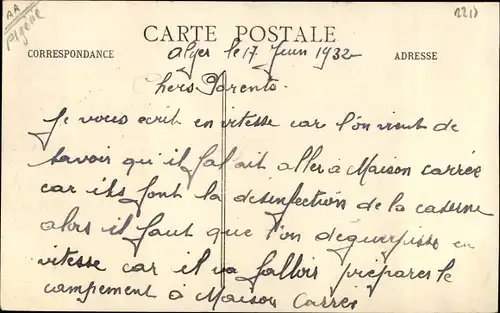 AA
Algérie
CARTE POSTALE
CORRESPONDANCE
ADRESSE
Alger le 17 Juin 1932
Chers Parents.
Je vous écrit en vitesse car l'on vient de
savoir qu'il falait aller à Maison carrée
car ils font la désinfection de la caserne
alors il faut que l'on déguerpisse en
vitesse car il va falloir préparer le
campement à Maison Carrée